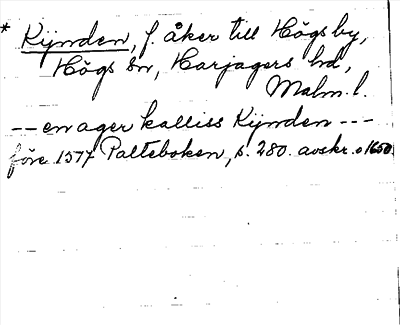 * Kijnden, f. åker till Högs by,
Högs sn, Harjagers hd,
Malm. l.
-- en ager kalliss Kijnden ---
före 1577 Palteboken, s. 280. avskr. o 1650